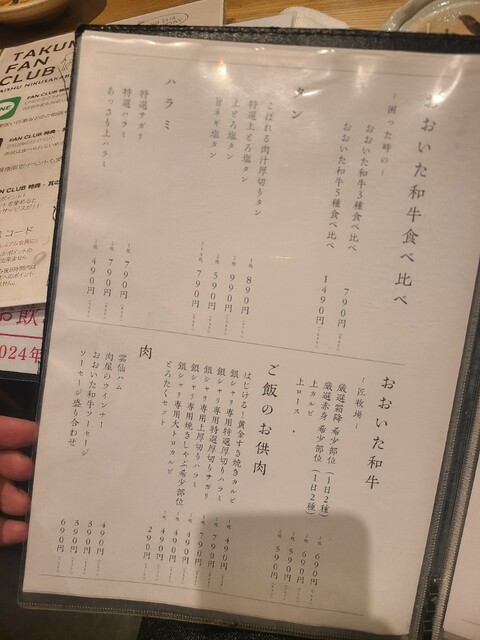 おおいた和牛食べ比べ
～困った時の～
おおいた和牛3種食べ比べ 790円
おおいた和牛5種食べ比べ 1490円
タン
こぼれる肉汁厚切りタン 1枚 890円
特選上とろ塩タン 990円
上とろ塩タン 590円
旨ネギ塩タン 790円
ハラミ
特選サガリ 790円
特選ハラミ 790円
あっさり上ハラミ 490円
おおいた和牛
～匠牧場～
厳選霜降 希少部位（1日2種） 690円
厳選赤身 希少部位（1日2種） 690円
上カルビ 590円
上ロース 590円
ご飯のお供肉
はじける！黄金すき焼きカルビ 1枚 490円
銀シャリ専用特選厚切りハラミ 1枚 790円
銀シャリ専用特選厚切りサガリ 1枚 790円
銀シャリ専用上厚切りハラミ 1枚 490円
銀シャリ専用焼きしゃぶ希少部位 1枚 490円
銀シャリ専用大トロカルビ 1枚 490円
とろたくセット 290円
肉
雲仙ハム 490円
肉屋のウインナー 390円
おおいた和牛ソーセージ 590円
ソーセージ盛り合わせ 690円
TAKUM
FAN
CLUB
AISHU NIKUSAKA
FAN CLUB 特典
CLUB 特典
コード
お飲
2024年